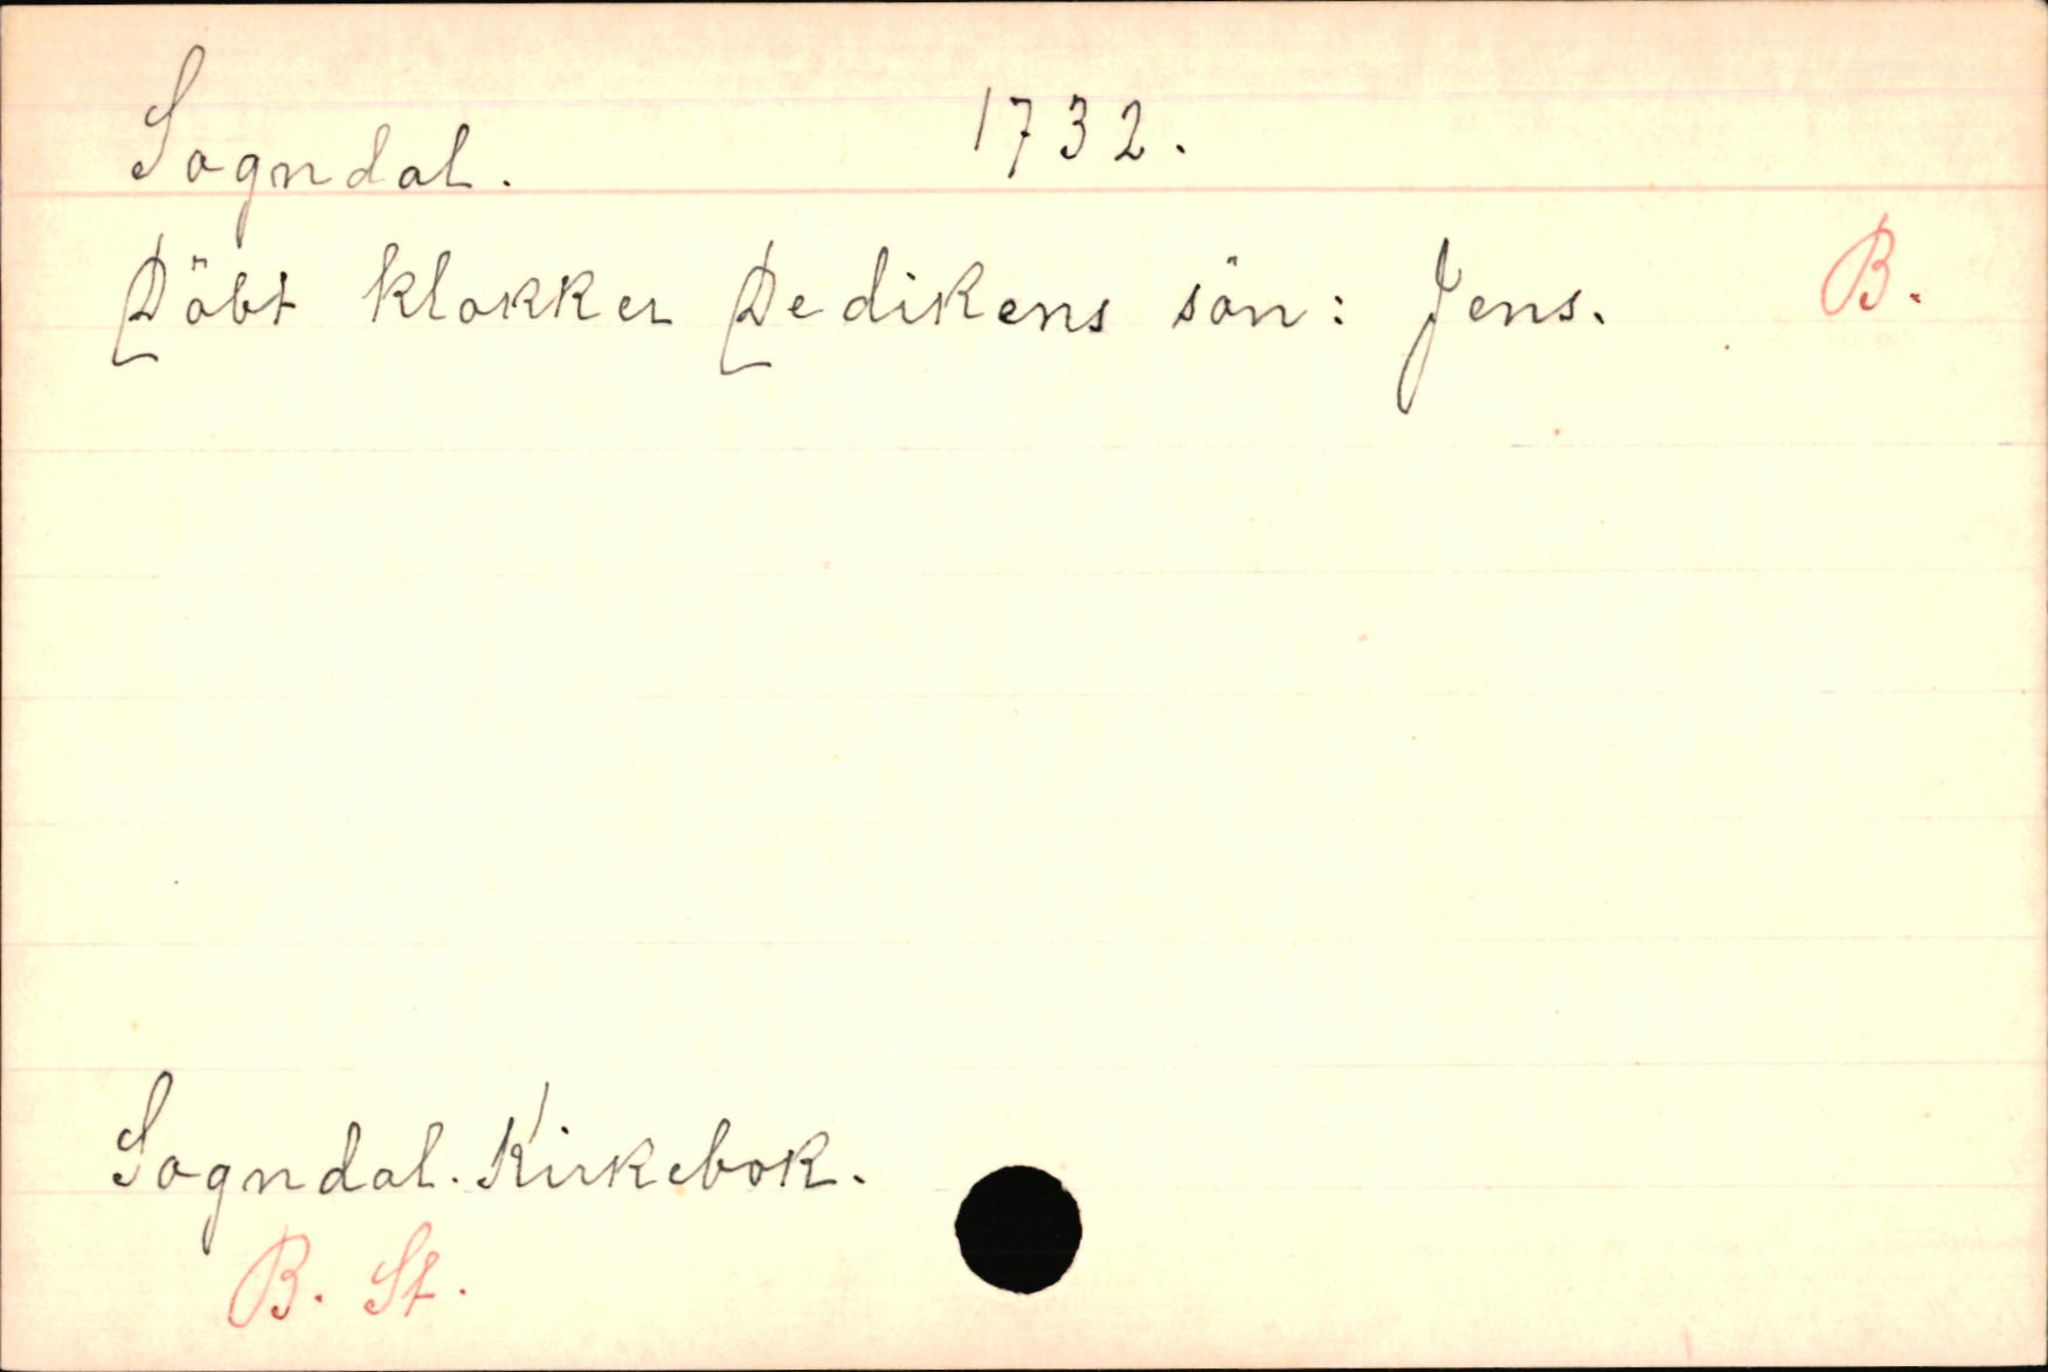 Sogndal. 1732.
Döbt klokker Dedikens sön: Jens. B.
Sogndal. Kirkebok.
B. St.